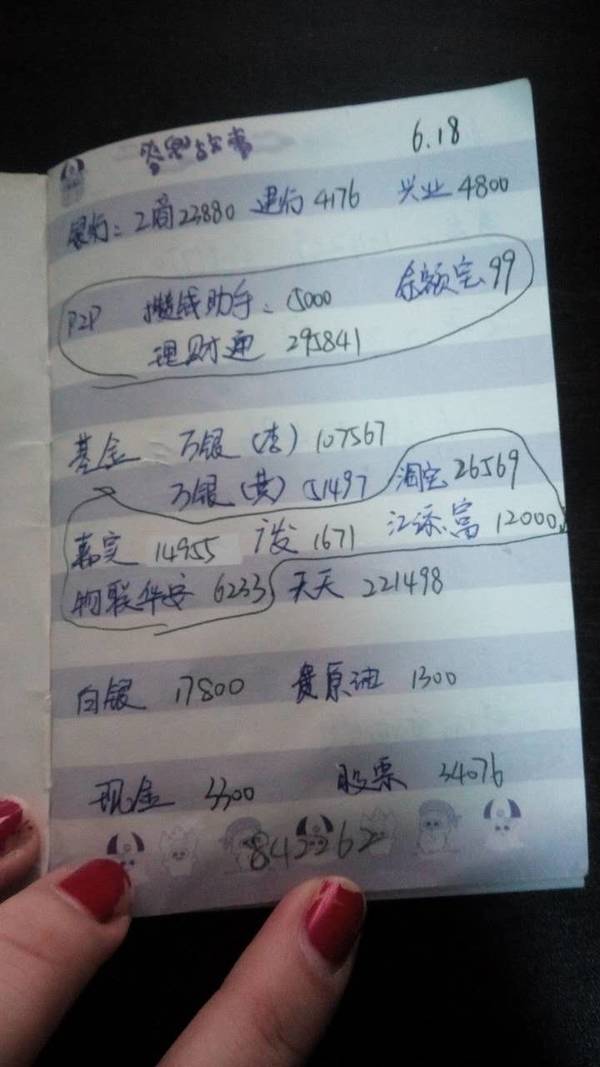 6.18
银行：工商23880 建行4176 兴业4800
P2P 攒钱助手：5000 余额宝99
理财通 295841
基金 万银 107567
万银（黄）51497 淘宝26569
嘉实 14955 广发1671 汇添富12000
物联华安 6233 天天 221498
白银 17800 贵原油 1300
现金 3300 股票 34076
842262